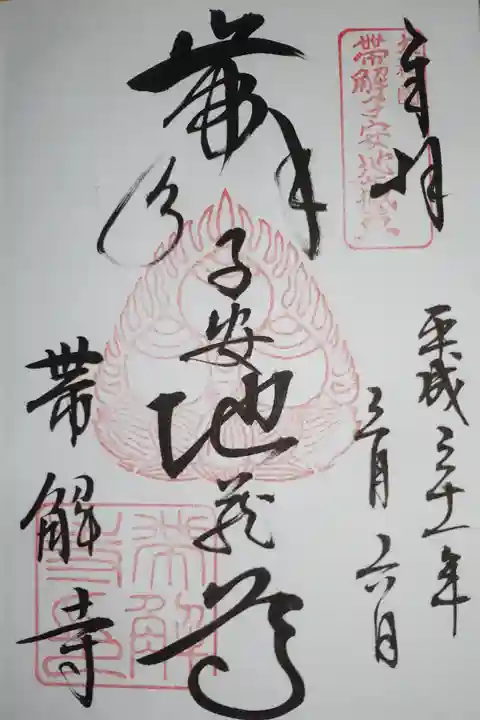 奉拝
帯解子安地蔵尊
平成三十一年
三月六日
帯解
子安地蔵尊
帯解寺
帯解寺印